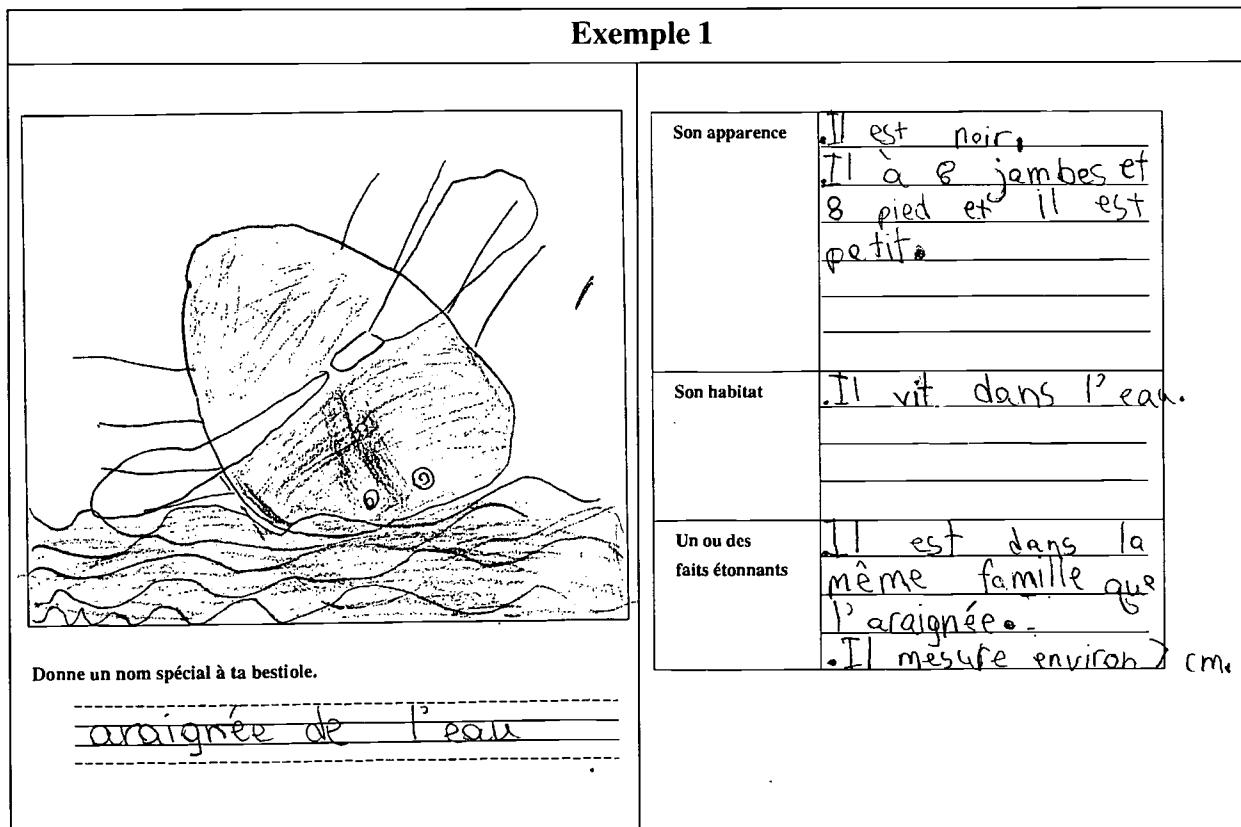 Exemple 1
Donne un nom spécial à ta bestiole.
araignée de l'eau
Son apparence
.Il est noir.
.Il à 8 jambes et
8 pied et il est
petit.
Son habitat
.Il vit dans l'eau.
Un ou des
faits étonnants
.Il est dans la
même famille que
l'araignée.
.Il mesure environ cm.